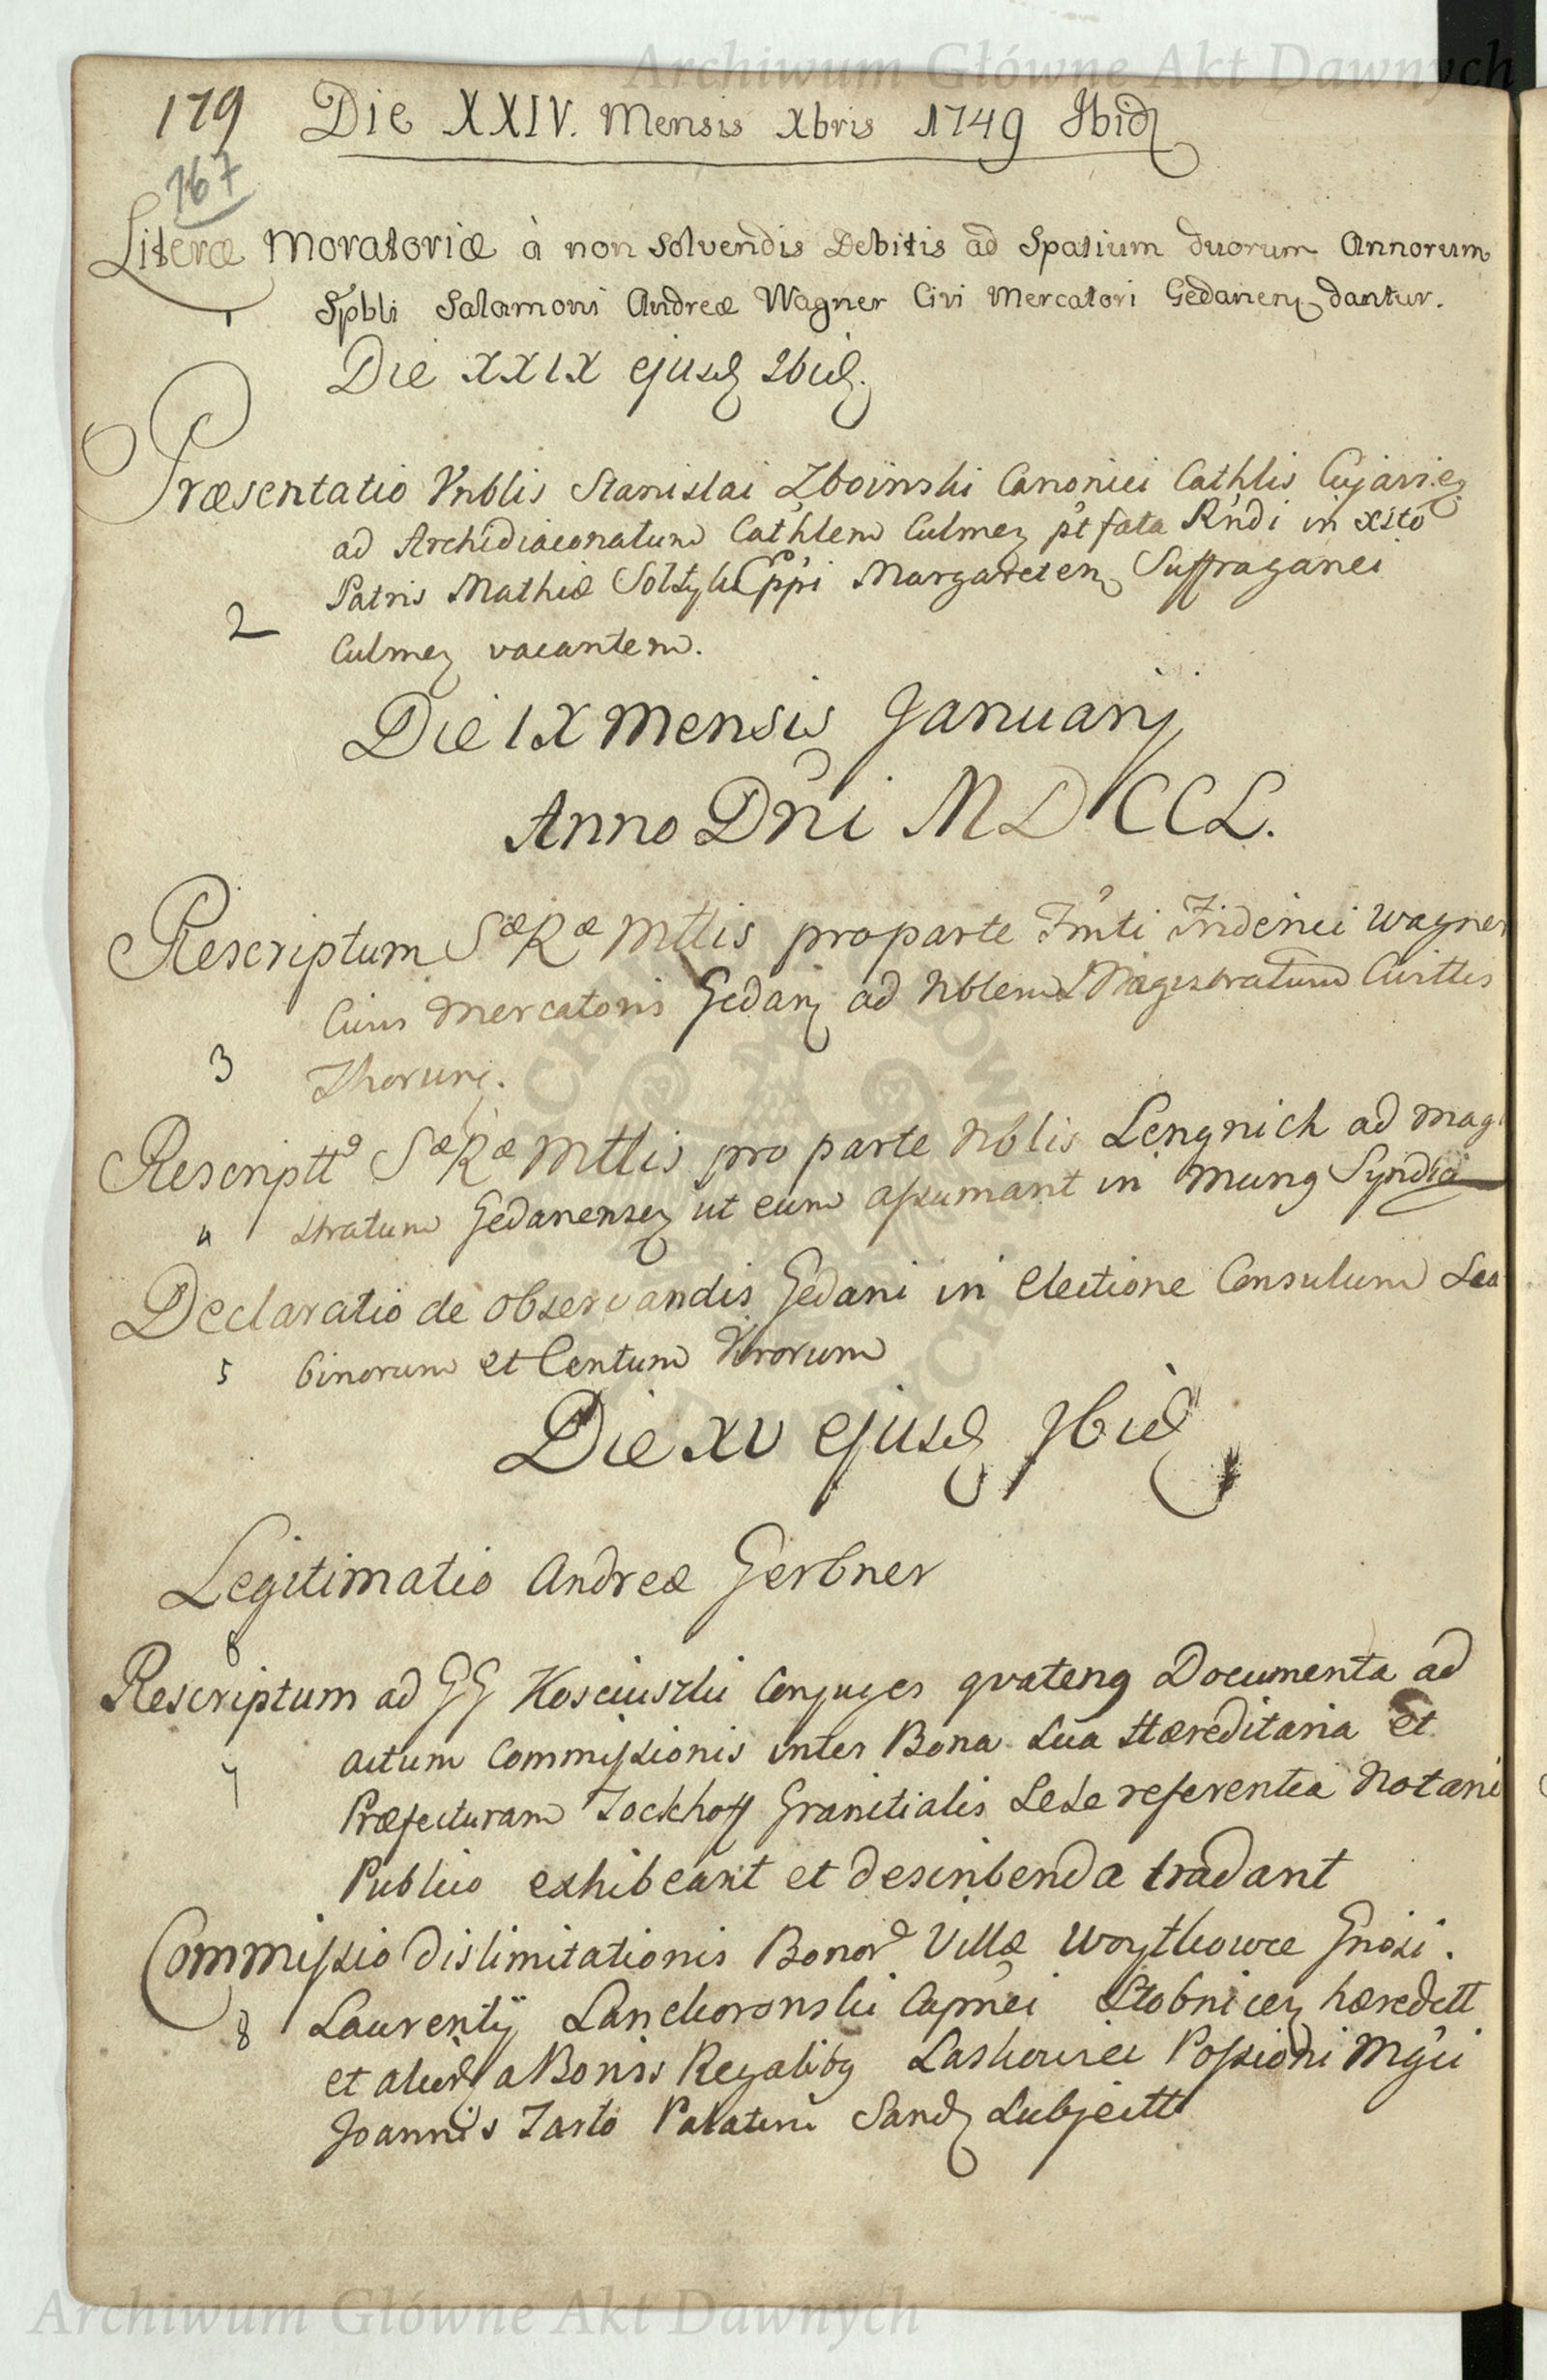 Archiwum Główne Akt Dawnych
179 Die XXIV. Mensis Xbris 1749 Ibid
167
Literæ Moratoriæ à non Solvendis Debitis ad Spatium duorum Annorum
1 Spbli Salamoni Andreæ Wagner Civi Mercatori Gedanen dantur.
Die XXIX ejusd Ibid.
Præsentatio Vnblis Stanislai Zboinski Canonici Cathlis Cujavie
ad Archidiaconatum Cathlem Culmen pt fata Rndi in Xsto
Patris Mathiæ Soltyk Eppi Margareten Suffraganei
2 Culmen vacantem.
Die IX Mensis Januarij
Anno Dni MDCCL.
Rescriptum Sæ Ræ Mttis pro parte Fmti Friderici Wagner
Civis Mercatoris Gedan ad Nblem Magistratum Civittis
3 Thorun.
Rescriptt Sæ Ræ Mttis pro parte Nblis Lengnich ad Magi
4 stratum Gedanensem ut eum assumant in Munus Syndici
Declaratio de observandis Gedani in Electione Consulum Sca
5 binorum et Centum Virorum
Die XV ejusd Ibid
Legitimatio Andreæ Gerbner
6
Rescriptum ad GG Kosciuszki Conjuges quatenq Documenta ad
7 actum Commissionis inter Bona sua Hæreditaria et
Præfecturam Tockhoff Granitialis sese referentia Notario
Publico exhibeant et describenda tradant
Commissio dislimitationis Bonor Villæ Woytkowce Gnosi.
8 Laurentij Lanckoronski Capnei Stobnicen hæreditt
et aliud a Bonis Regalibq Laskowiec Possioni Mgci
Joannis Tarlo Palatini Sand Subjectt
Archiwum Główne Akt Dawnych